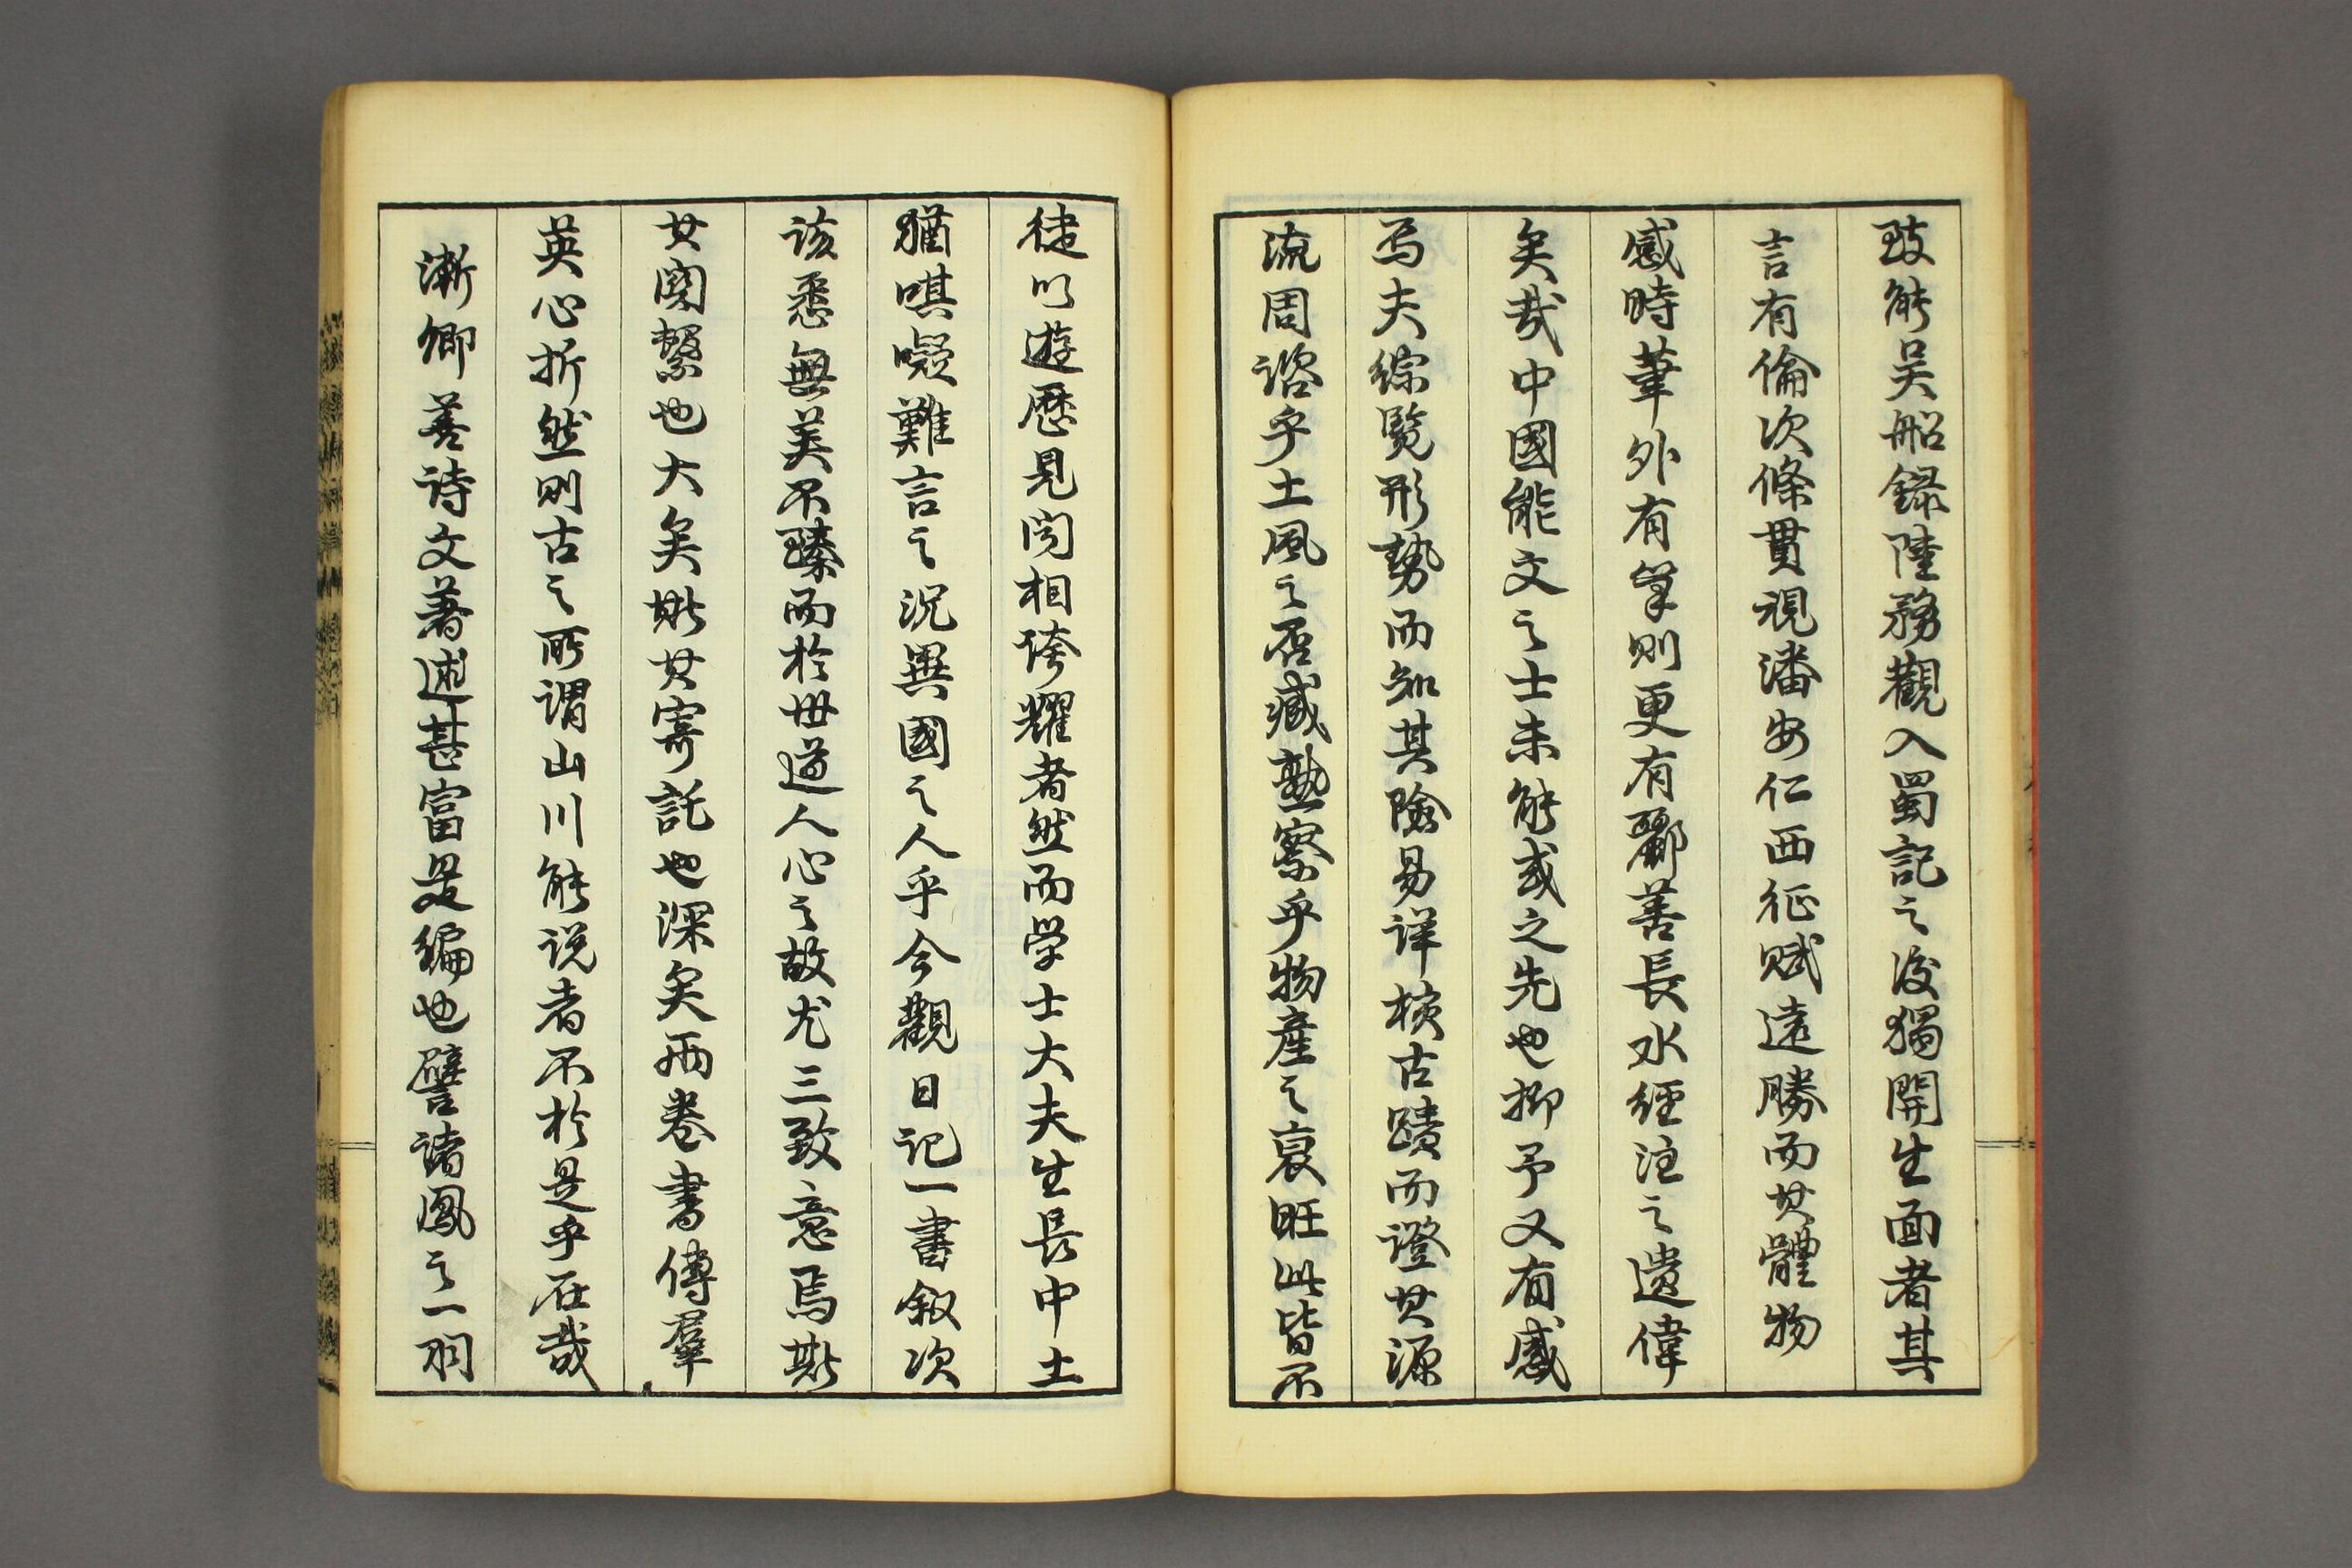 致能吴船録陸務觀入蜀記之後獨開生面者其
言有倫次條貫視潘安仁西征賦遠勝而其體物
感時筆外有筆則更有酈善長水經注之遺偉
矣哉中國能文之士未能或之先也抑予又有感
焉夫綜覽形勢而知其險易详核古蹟而證其源
流周諮乎土風之否臧熟察乎物產之衰旺此皆不
徒以遊歷見聞相誇耀者然而学士大夫生長中土
猶嘆難言之況異國之人乎今觀日记一書叙次
该悉無美不臻而於世道人心之故尤三致意焉斯
其関繫也大矣斯其寄託也深矣两卷書傳羣
英心折然则古之所謂山川能说者不於是乎在哉
漸卿善诗文著述甚富是編也譬諸鳳之一羽